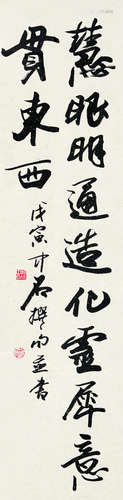 慧眼明通造化靈犀意
貫東西
戊寅中石撰句並書